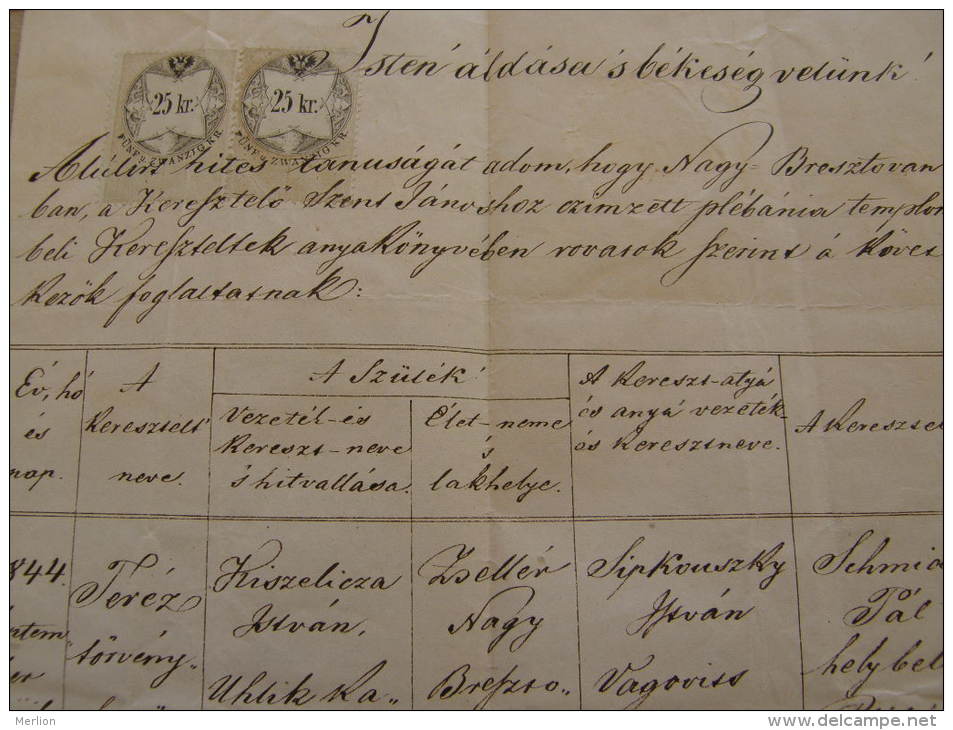 Isten' áldása 's békeség velünk!
25 kr. 25 kr.
FÜNF U. ZWANZIG KR. FÜNF U. ZWANZIG KR.
Alúlirt hites tanuságát adom, hogy Nagy-Bresztovan
ban, a Keresztelő Szent Jánoshoz czimzett plébánia templom
beli Kereszteltek anyakönyvében rovatok szerint a' követ
kezők foglaltatnak:
Év, hó
és
nap.
A
keresztelt
neve.
A Szülék'
Vezeték-és
kereszt-neve
's hitvallása.
Élet-neme
's
lakhelye.
A kereszt-atya
és anya' vezeték-
és keresztneve.
A keresztel
844.
Teréz
törvény„
Kiszelicza
István,
Uhlik Ka„
Zsellér
Nagy
Breszto„
Sipkouszky
István
Vagoviss
Schmid
Pál
helybel
Merlion
www.delcampe.net